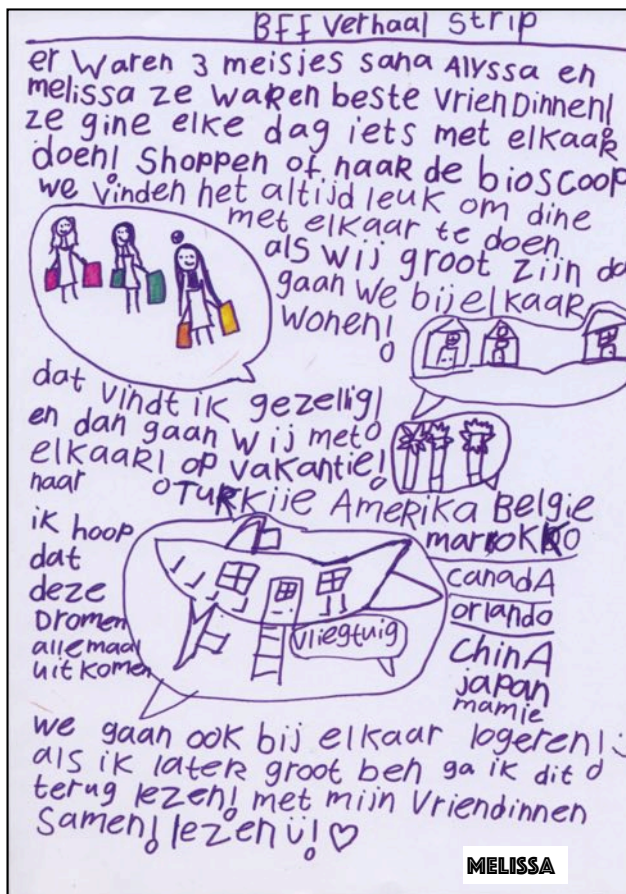 BFF verhaal Strip
er waren 3 meisjes sana Alyssa en
melissa ze waren beste vrienDinnen!
ze gine elke dag iets met elkaar
doen! Shoppen of naar de bioscoop
we vinden het altijd leuk om dine
met elkaar te doen
als wij groot zijn da
gaan we bij elkaar
wonen!
dat vindt ik gezellig!
en dan gaan wij met
elkaar! op vakantie!
naar TURKije Amerika Belgie
marokko
canadA
orlando
chinA
japan
mamie
ik hoop
dat
deze
Dromen
allemaal
uit komen
vliegtuig
we gaan ook bij elkaar logeren!
als ik later groot ben ga ik dit
terug lezen! met mijn vriendinnen
Samen! lezen ü! ♡
MELISSA